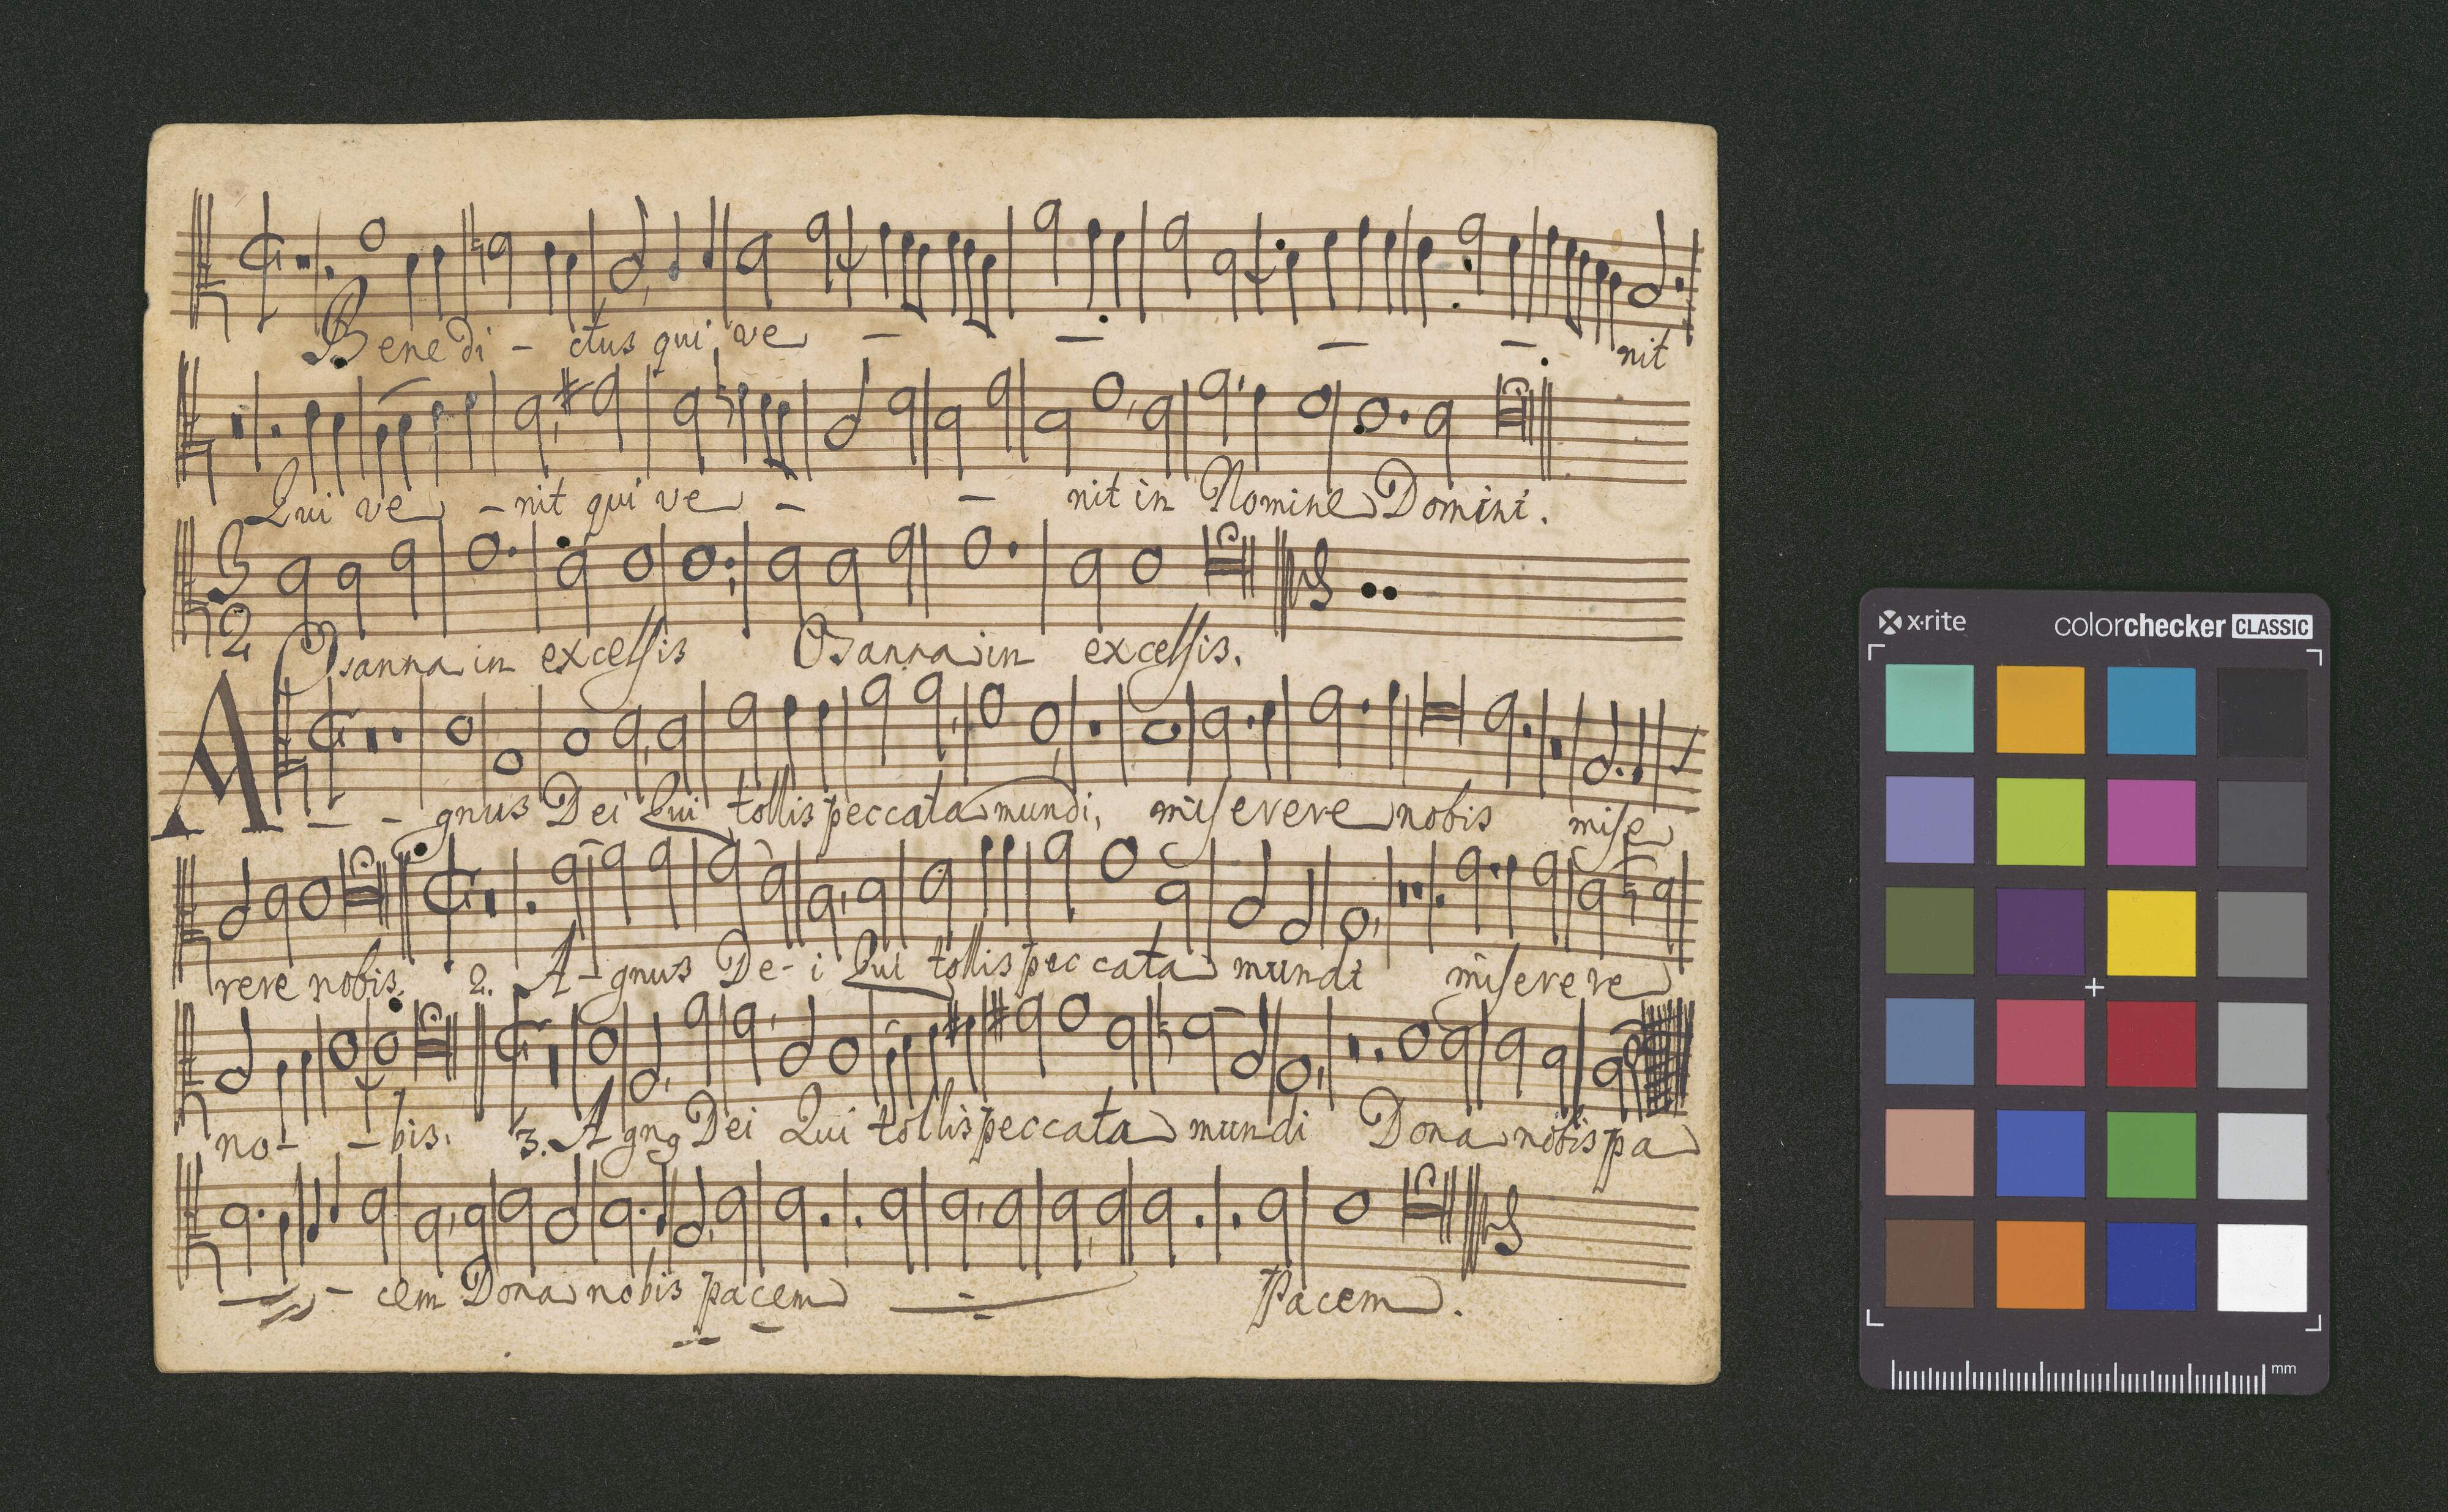 Benedi - ctus qui ve - - - - nit
Qui ve - nit qui ve - - nit in Nomine Domini.
3
2
Osanna in excelsis Osanna in excelsis.
A - - gnus Dei Qui tollis peccata mundi, miserere nobis mise
rere nobis. 2. A - gnus De - i Qui tollis peccata mundi miserere
no - - bis. 3. A gng Dei Qui tollis peccata mundi Dona nobis pa
- cem Dona nobis pacem Pacem.
x·rite
colorchecker CLASSIC
mm